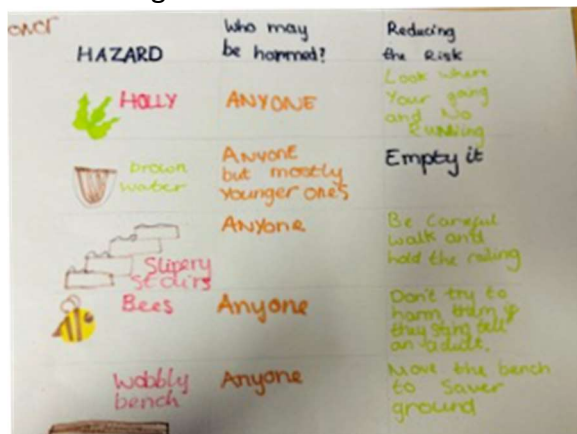 HAZARD
Who may
be harmed?
Reducing
the Risk
HOLLY
ANYONE
Look where
Your going
and No
Running
brown
water
Anyone
but mostly
younger ones
Empty it
Slipery
stairs
Anyone
Be Careful
walk and
hold the railing
Bees
Anyone
Don't try to
harm them if
they sting tell
an adult.
Wobbly
bench
Anyone
Move the bench
to Saver
ground